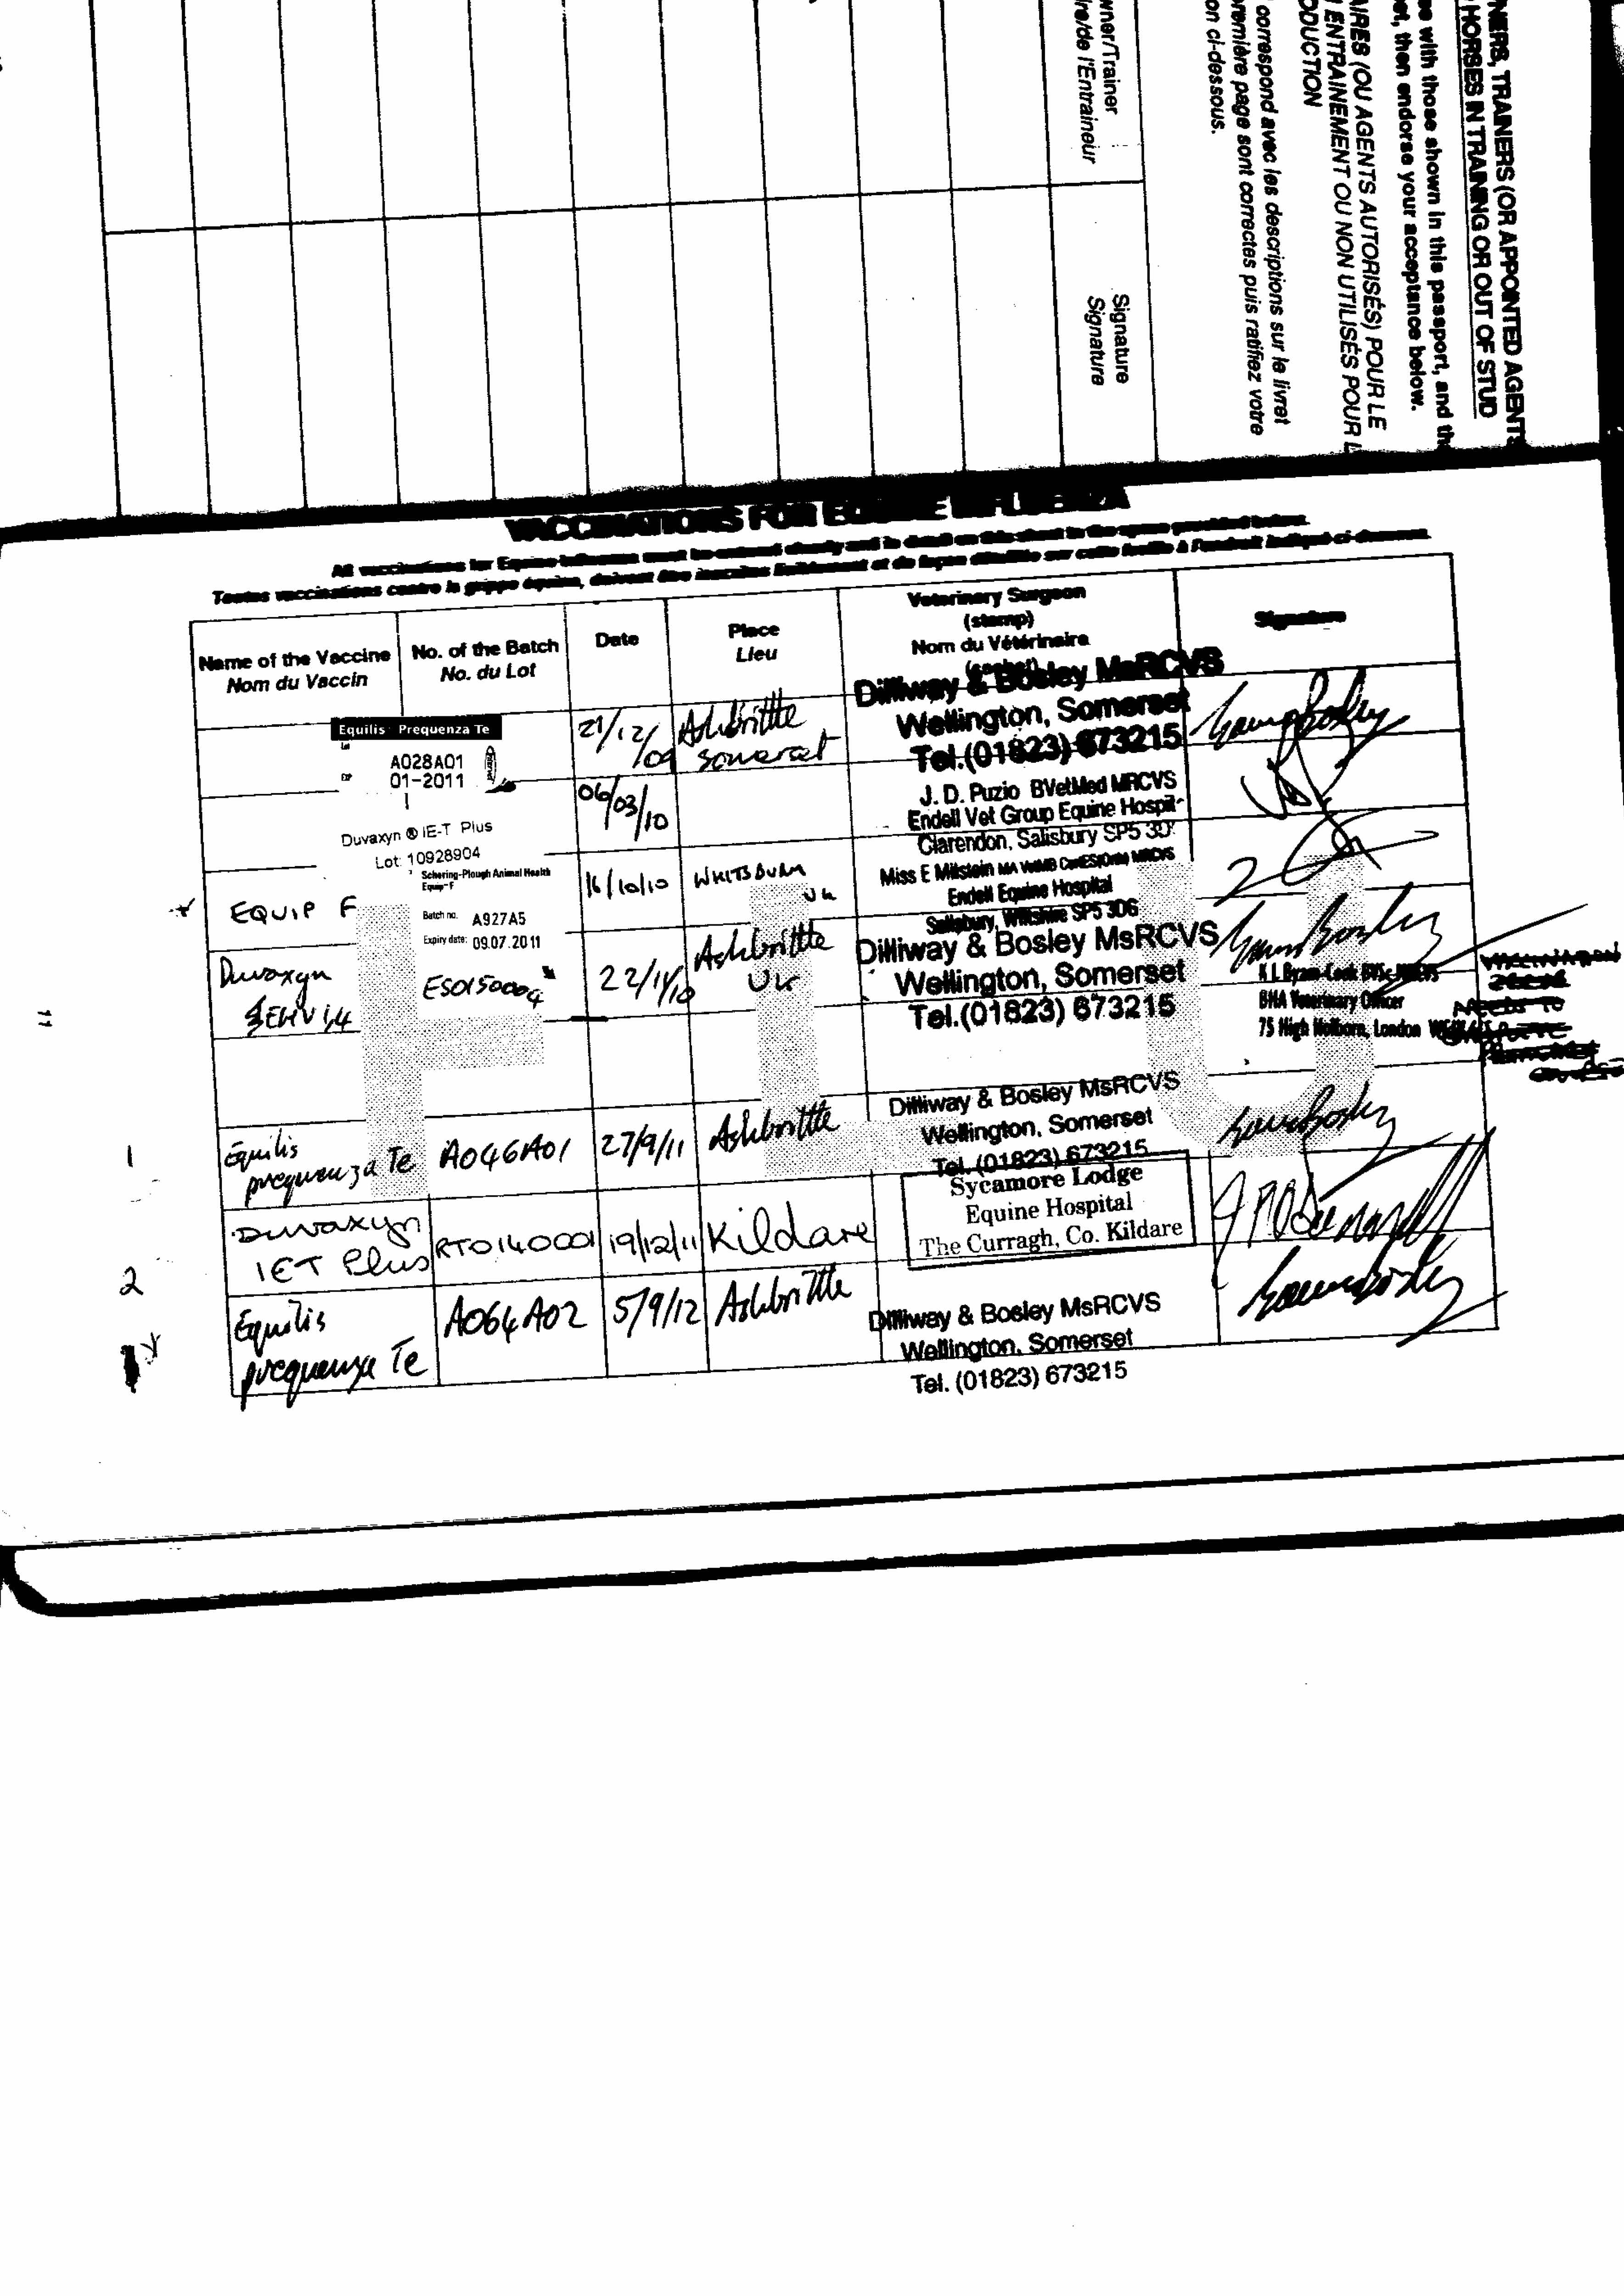 NERS, TRAINERS (OR APPOINTED AGENTS
HORSES IN TRAINING OR OUT OF STUD
with those shown in this passport, and
then endorse your acceptance below.
AIRES (OU AGENTS AUTORISÉS) POUR LE
ENTRAINEMENT OU NON UTILISÉS POUR
ODUCTION
correspond avec les descriptions sur le livret
première page sont correctes puis ratifiez votre
on ci-dessous.
wner/Trainer
re/de l'Entraineur
Signature
Signature
VACCINATIONS FOR EQUINE INFLUENZA
All vaccinations for Equine Influenza must be entered clearly and in detail on this sheet in the space provided below.
Toutes vaccinations contre la grippe équine, doivent être inscrites lisiblement et de façon détaillée sur cette feuille à l'endroit indiqué ci-dessous.
Name of the Vaccine
Nom du Vaccin
No. of the Batch
No. du Lot
Date
Place
Lieu
Veterinary Surgeon
(stamp)
Nom du Vétérinaire
(cachet)
Signature
Equilis Prequenza Te
Lot A028A01
EXP 01-2011
21/12/09
Ashbrittle
Somerset
Dilliway & Bosley MsRCVS
Wellington, Somerset
Tel.(01823) 673215
Duvaxyn ® IE-T Plus
Lot: 10928904
06/03/10
J. D. Puzio BVetMed MRCVS
Endell Vet Group Equine Hospit
Clarendon, Salisbury SP5 3D
EQUIP F
Schering-Plough Animal Health
Equip-F
Batch no. A927A5
Expiry date: 09.07.2011
16/10/10
WHITSBURY
UK
Miss E Milstein MA VetMB CertES(Orth) MRCVS
Endell Equine Hospital
Salisbury, Wiltshire SP5 3DG
Duvaxyn
EHV 1,4
ES0150004
22/11/10
Ashbrittle
UK
Dilliway & Bosley MsRCVS
Wellington, Somerset
Tel.(01823) 673215
BHA Veterinary Officer
75 High Holborn, London
NEEDS TO
1
Equilis
prequenza Te
A046A01
27/9/11
Ashbrittle
Dilliway & Bosley MsRCVS
Wellington, Somerset
Tel. (01823) 673215
2
Duvaxyn
IET Plus
RT0140001
19/12/11
Kildare
Sycamore Lodge
Equine Hospital
The Curragh, Co. Kildare
Equilis
prequenza Te
A064A02
5/9/12
Ashbrittle
Dilliway & Bosley MsRCVS
Wellington, Somerset
Tel. (01823) 673215